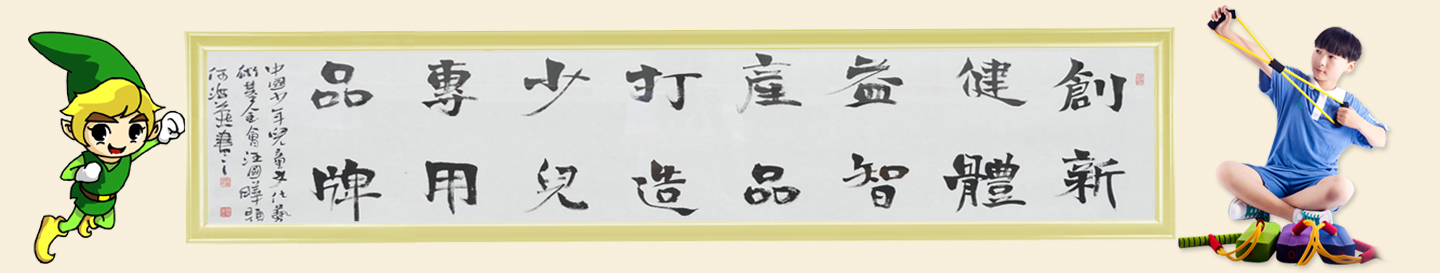 創新
健體
益智
産品
打造
少兒
專用
品牌
中國少年兒童文化藝
術基金會汪國題
何海燕書